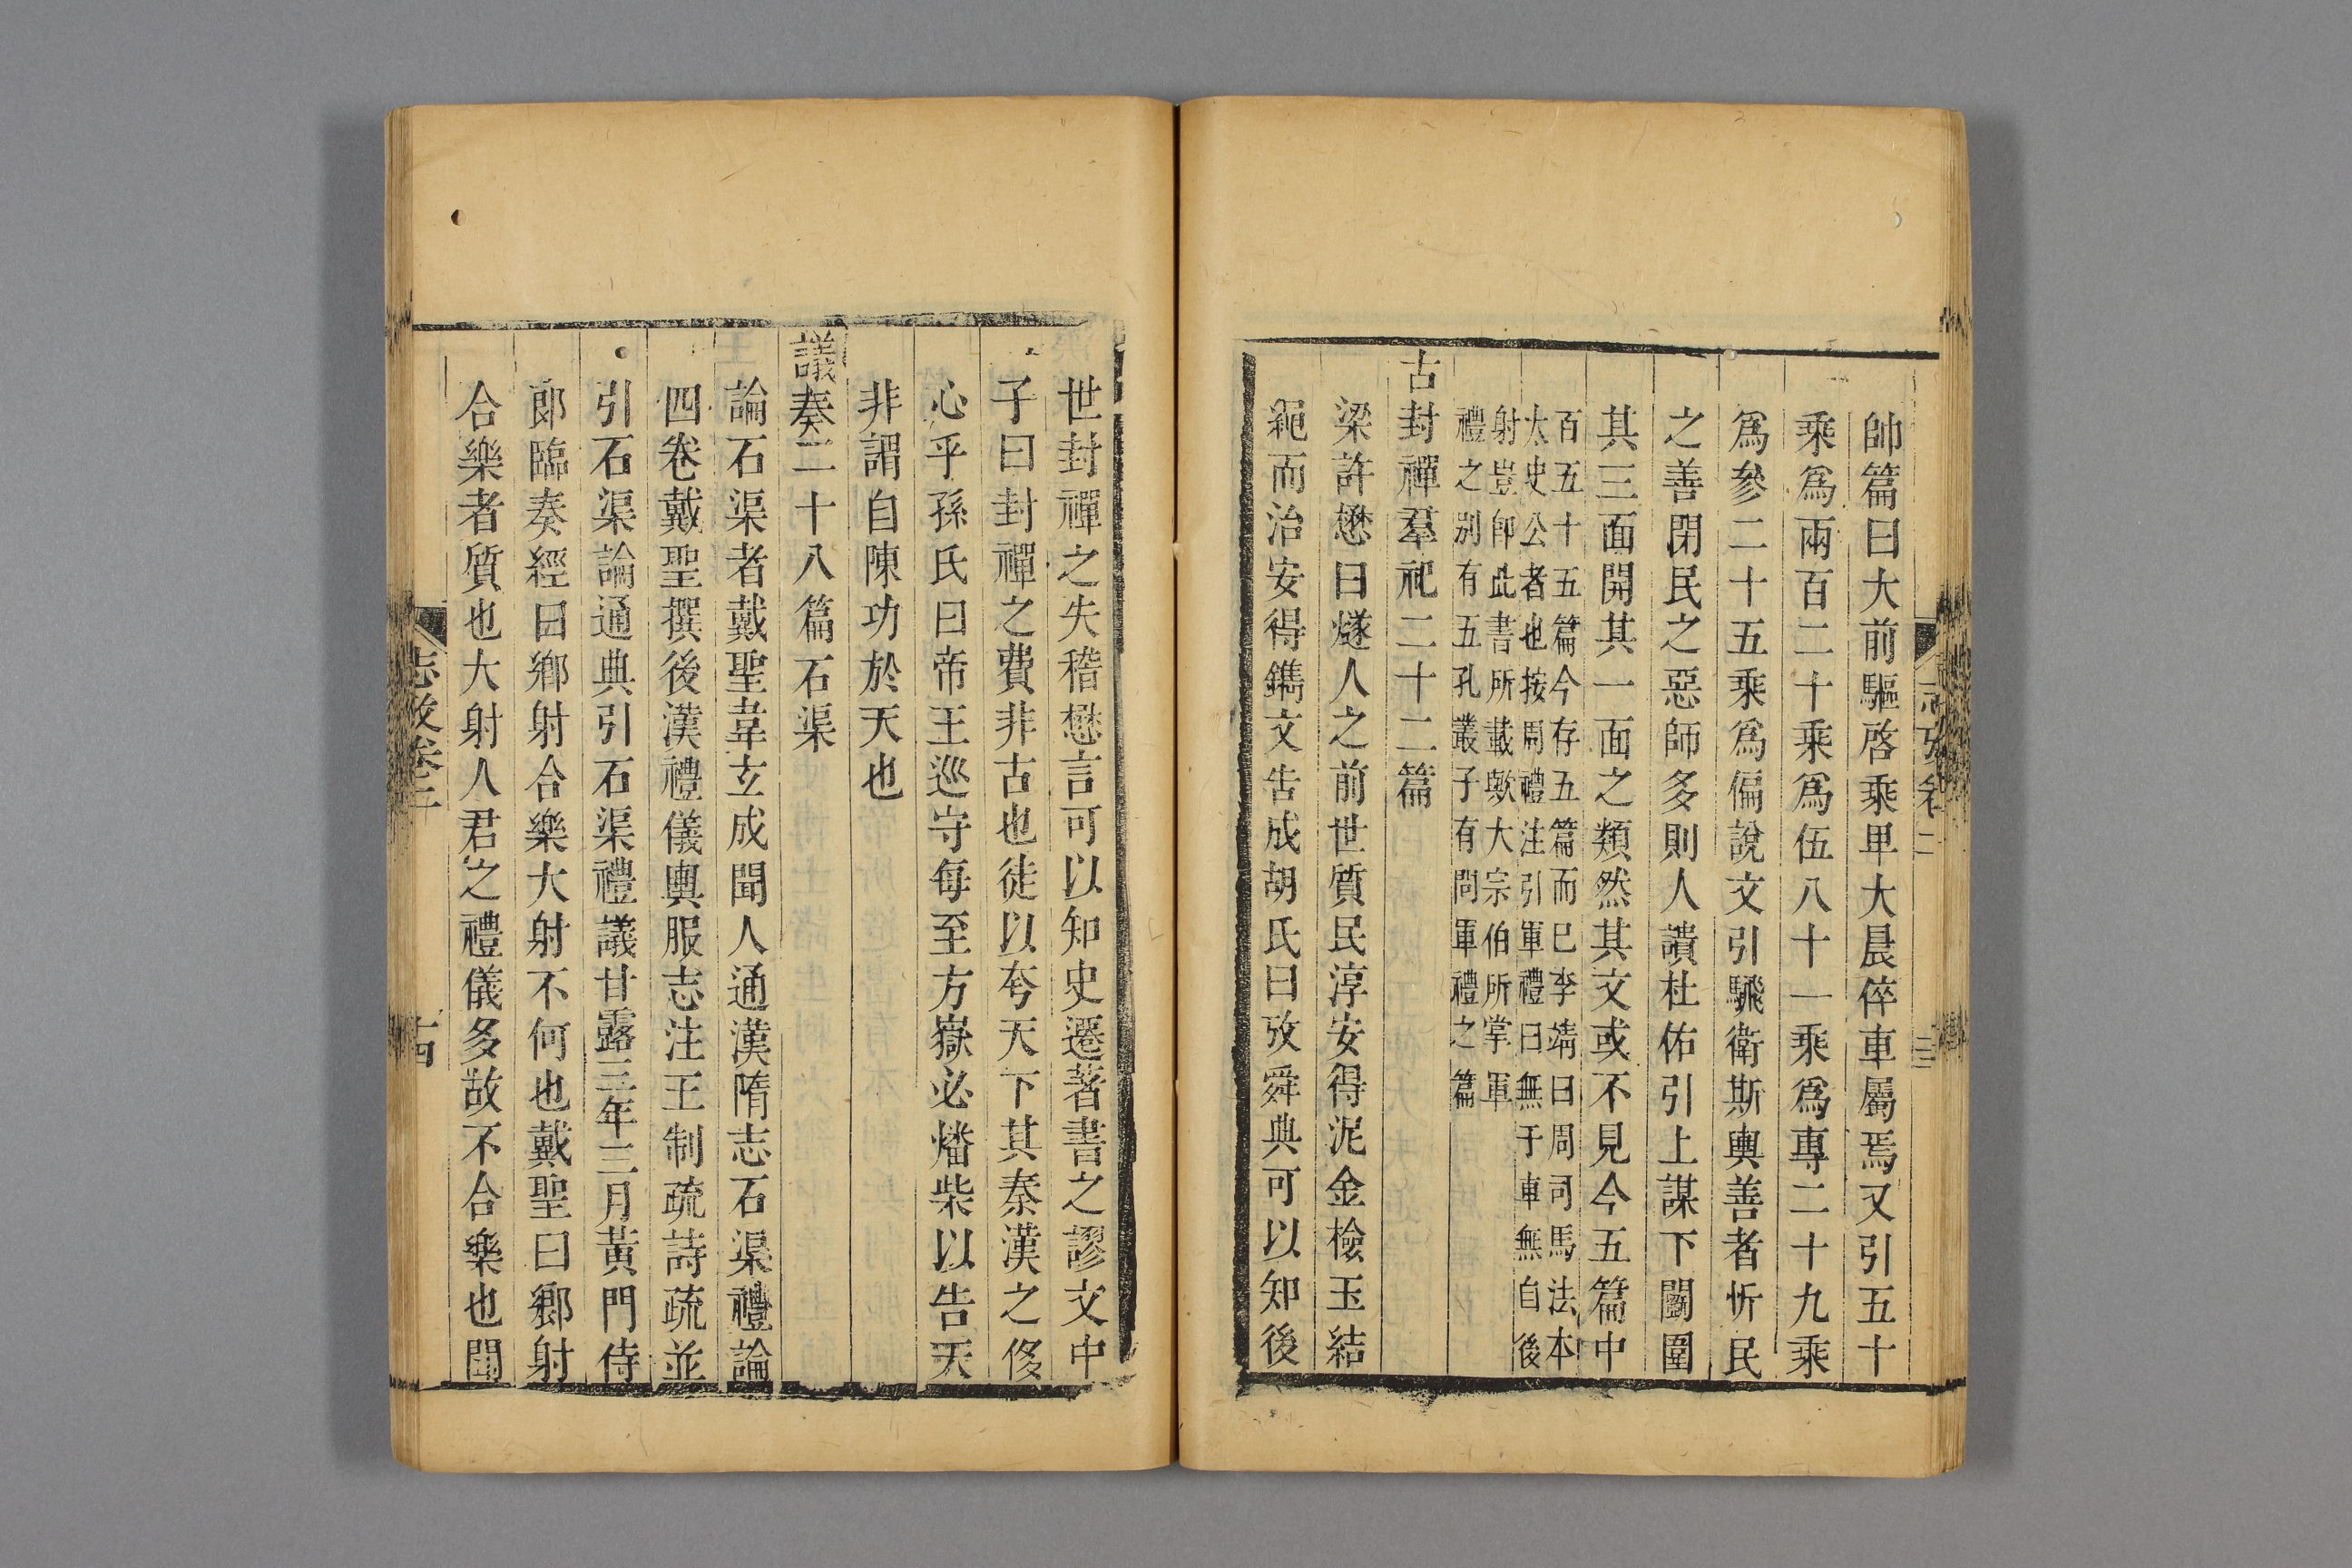 帥篇曰大前驅啓乘車大晨倅車屬焉又引五十
乘爲兩百二十乘爲伍八十一乘爲專二十九乘
爲參二十五乘爲偏說文引驖衛斯輿善者忻民
之善閉民之惡師多則人讀杜佑引上謀下鬭圍
其三面開其一面之類然其文或不見今五篇中
百五十五篇今存五篇而已李靖曰周司馬法本
太史公者也按周禮注引軍禮曰無干車無自後
射豈卽此書所載歟大宗伯所掌軍
禮之別有五孔叢子有問軍禮之篇
古封禪羣祀二十二篇
梁許懋曰燧人之前世質民淳安得泥金檢玉結
繩而治安得鐫文告成胡氏曰攷舜典可以知後
世封禪之失稽懋言可以知史遷著書之謬文中
子曰封禪之費非古也徒以夸天下其秦漢之侈
心乎孫氏曰帝王巡守每至方嶽必燔柴以告天
非謂自陳功於天也
議奏三十八篇石渠
論石渠者戴聖韋玄成聞人通漢隋志石渠禮論
四卷戴聖撰後漢禮儀輿服志注王制疏詩疏並
引石渠論通典引石渠禮議甘露三年三月黃門侍
郎臨奏經曰鄉射合樂大射不何也戴聖曰鄉射
合樂者質也大射人君之禮儀多故不合樂也聞
志攷卷二
十四